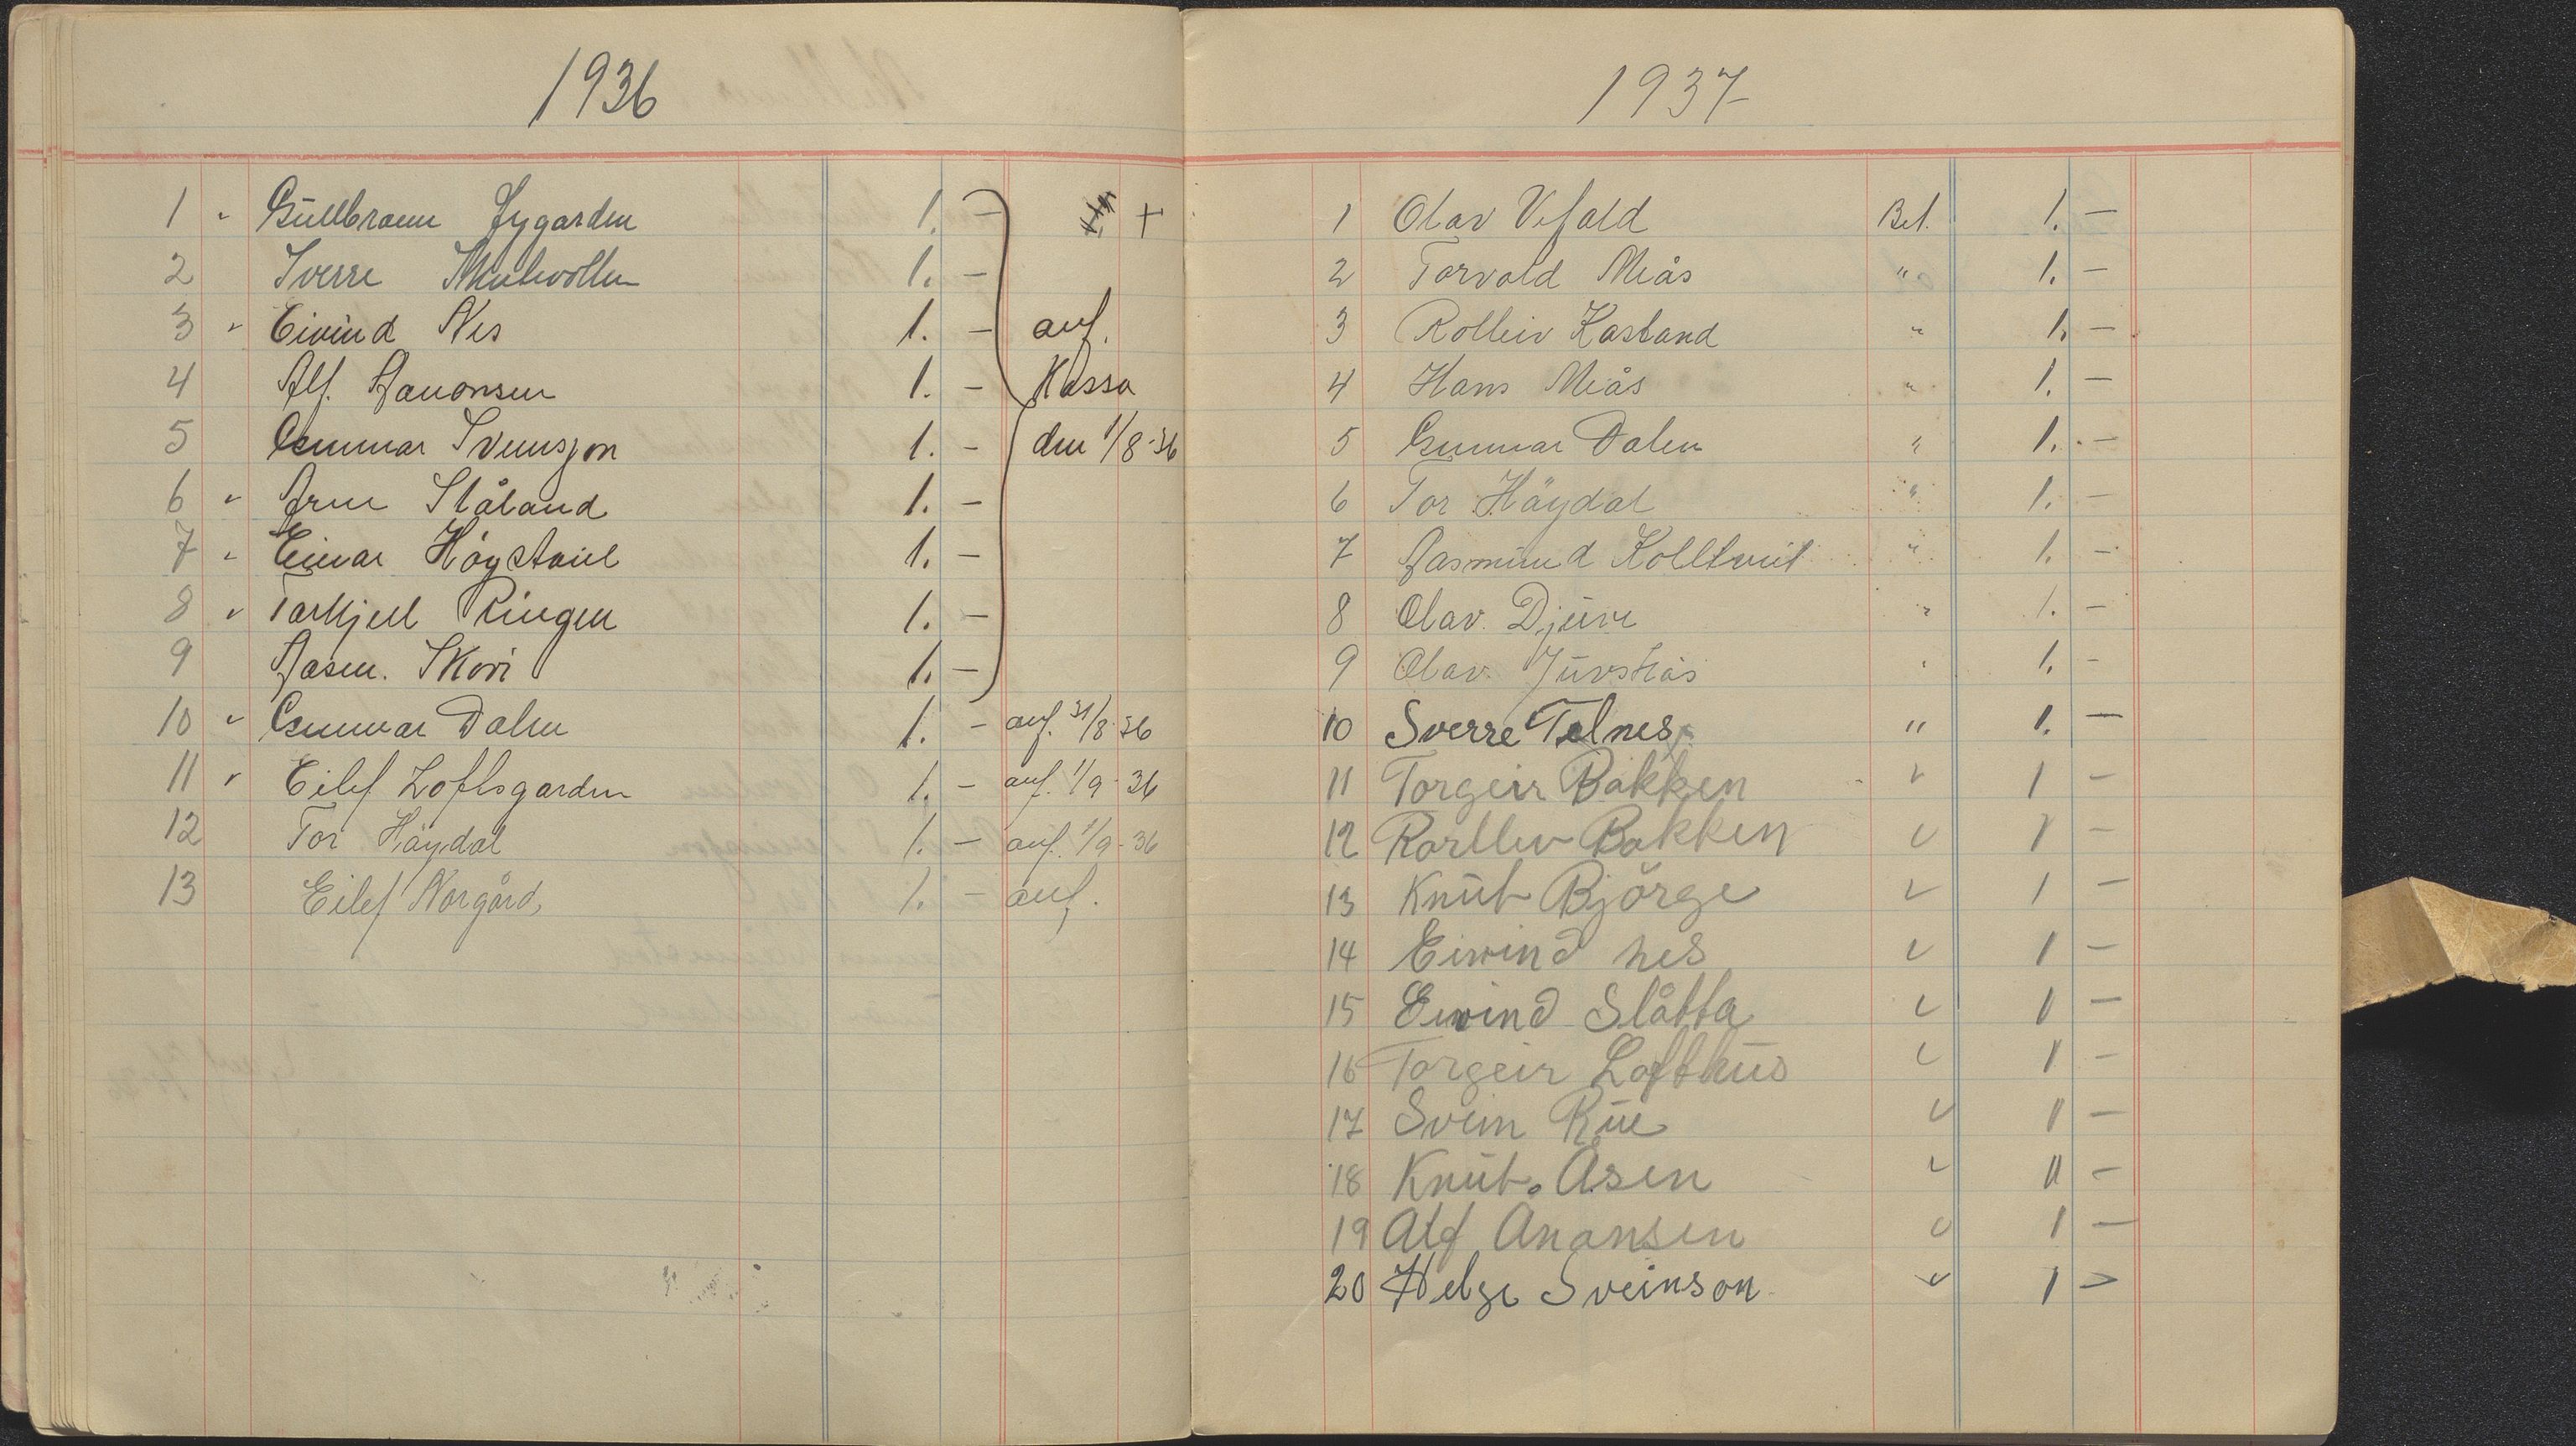 1936
1 " Gullbrann Lygarden 1. - +
2 Sverre 1. -
3 " Eivind Nes 1. - auf.
4 Alf. Aanonsen 1. - Kassa
5 Gunnar Svensson 1. - den 1/8-36
6 " Arne Ståland 1. -
7 " Einar Höystaul 1. -
8 " Tarkjell Ringen 1. -
9 Aasm. Skori 1. -
10 " Gunnar Dalen 1. - auf. 31/8-36
11 " Eilef Loftsgarden 1. - auf. 1/9-36
12 Tor Höydal 1. - auf. 1/9-36
13 Eilef Norgård, 1. - auf.
1937
1 Olav Vefald Bet. 1. -
2 Torvald Meås " 1. -
3 Rolleiv Kasland " 1. -
4 Hans Meås " 1. -
5 Gunnar Dalen " 1. -
6 Tor Höydal " 1. -
7 Aasmund Kolltveit " 1. -
8 Olav Djuve " 1. -
9 Olav " 1. -
10 Sverre Telnes " 1. -
11 Torgeir Bakken " 1 -
12 Rolleiv Bakken " 1 -
13 Knut Björge " 1 -
14 Eivind nes " 1 -
15 Eivind Slåtta " 1 -
16 Torgeir Lofthus " 1 -
17 Svein Rue " 1 -
18 Knut. Åsen " 1 -
19 Alf Anonsen " 1 -
20 Helge Sveinson " 1 -